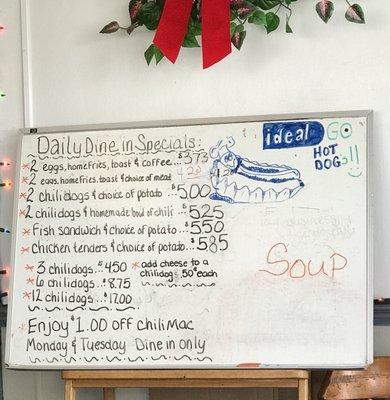 Daily Dine in Specials:
2 eggs, homefries, toast & coffee...$3.73
2 eggs, homefries, toast & choice of meat 4.20
2 chilidogs & choice of potato...$5.00
2 chilidogs & homemade bowl of chili $5.25
Fish sandwich & choice of potato...$5.50
chicken tenders & choice of potato...$5.85
3 chilidogs...$4.50
6 chilidogs...$8.75
12 chilidogs...$17.00
* add cheese to a
chilidogs .50 each
Enjoy $1.00 off chili Mac
Monday & Tuesday Dine in only
ideal
HOT
DOGS!!
Soup